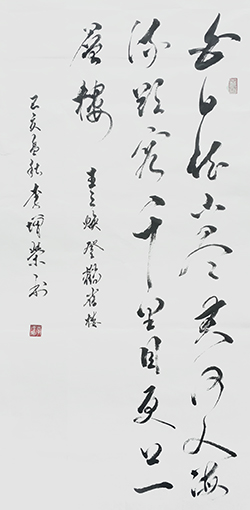 白日依山盡黃河入海
流欲窮千里目更上一
層樓
王之渙登鸛雀樓
己亥孟秋李增榮書